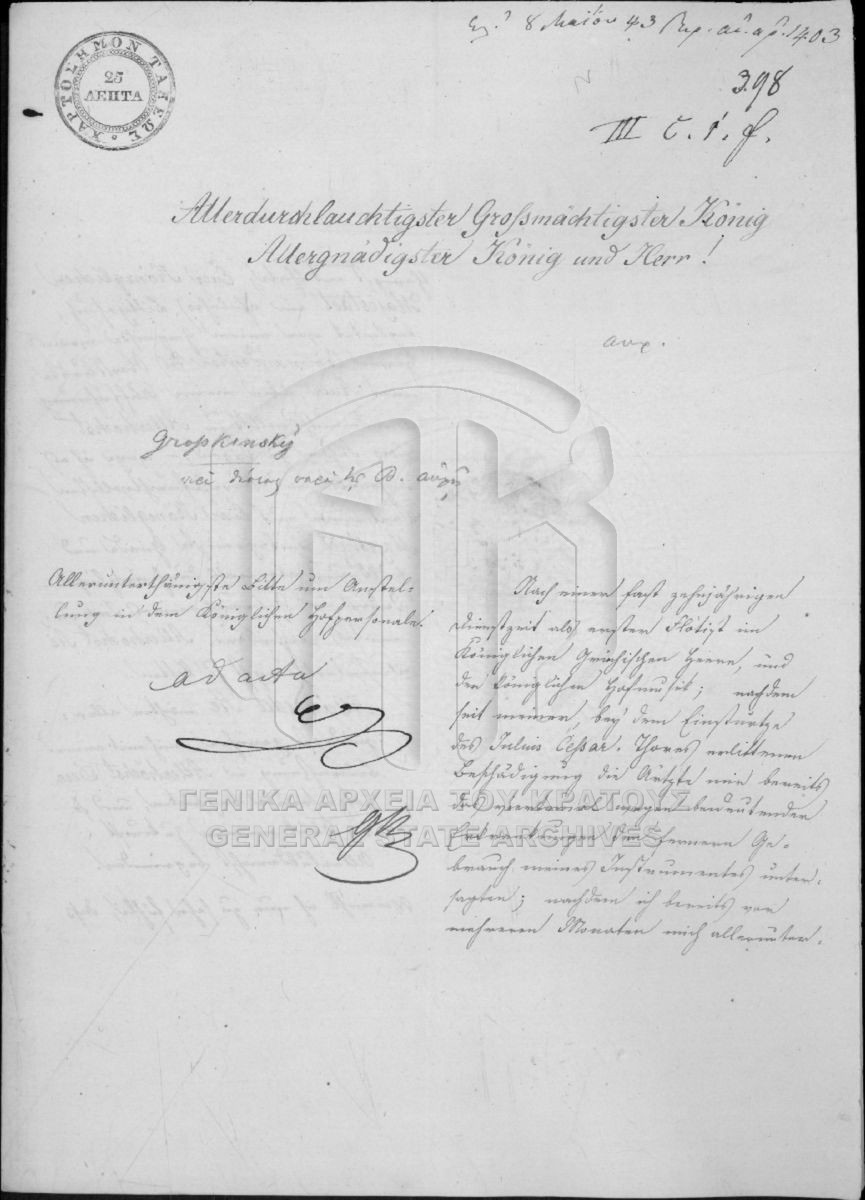 8 Μαΐου 43 1403
ΧΑΡΤΟΣΗΜΟΝ ΤΑΞΕΩΣ
25
ΛΕΠΤΑ
398
III C. 1. f.
Allerdurchlauchtigster Großmächtigster König
Allergnädigster König und Herr!
Gropkinsky
Allerunterthänigste Bitte um Anstel-
lung in dem Königlichen Hofpersonale.
ad acta
Nach einer fast zehnjährigen
Dienstzeit als erster Flötist im
Königlichen Griechischen Heere, und
der königlichen Hofmusik; nachdem
seit meiner, bey dem Einsturtze
des Julius Cesar. Thores erlittenen
Beschädigung die Ärtzte mir bereits
das viertemal wegen bedeutender
Erkrankungen den fernern Ge-
brauch meines Instrumentes unter-
sagten; nachdem ich bereits vor
mehreren Monaten mich allerunter-
ΓΕΝΙΚΑ ΑΡΧΕΙΑ ΤΟΥ ΚΡΑΤΟΥΣ
GENERAL STATE ARCHIVES